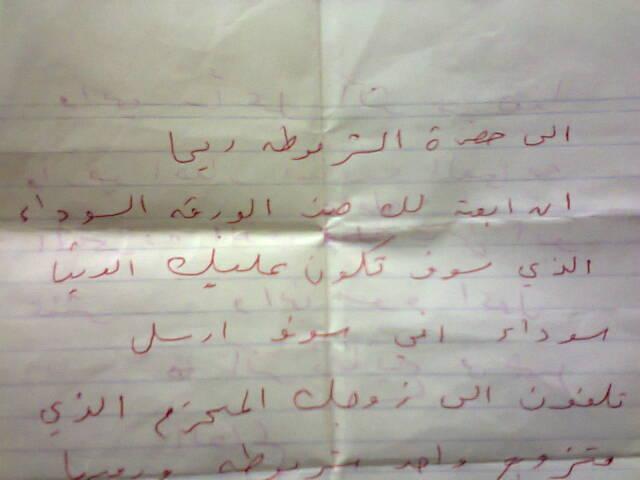 الى حضرة الشرموطه ريما
ان ابعة لك هذ الورقه السوداء
الذي سوف تكون عليك الدنيا
سوداء اني سوف ارسل
تلفون الى زوجك المحترم الذي
متزوج واحد شرموطه